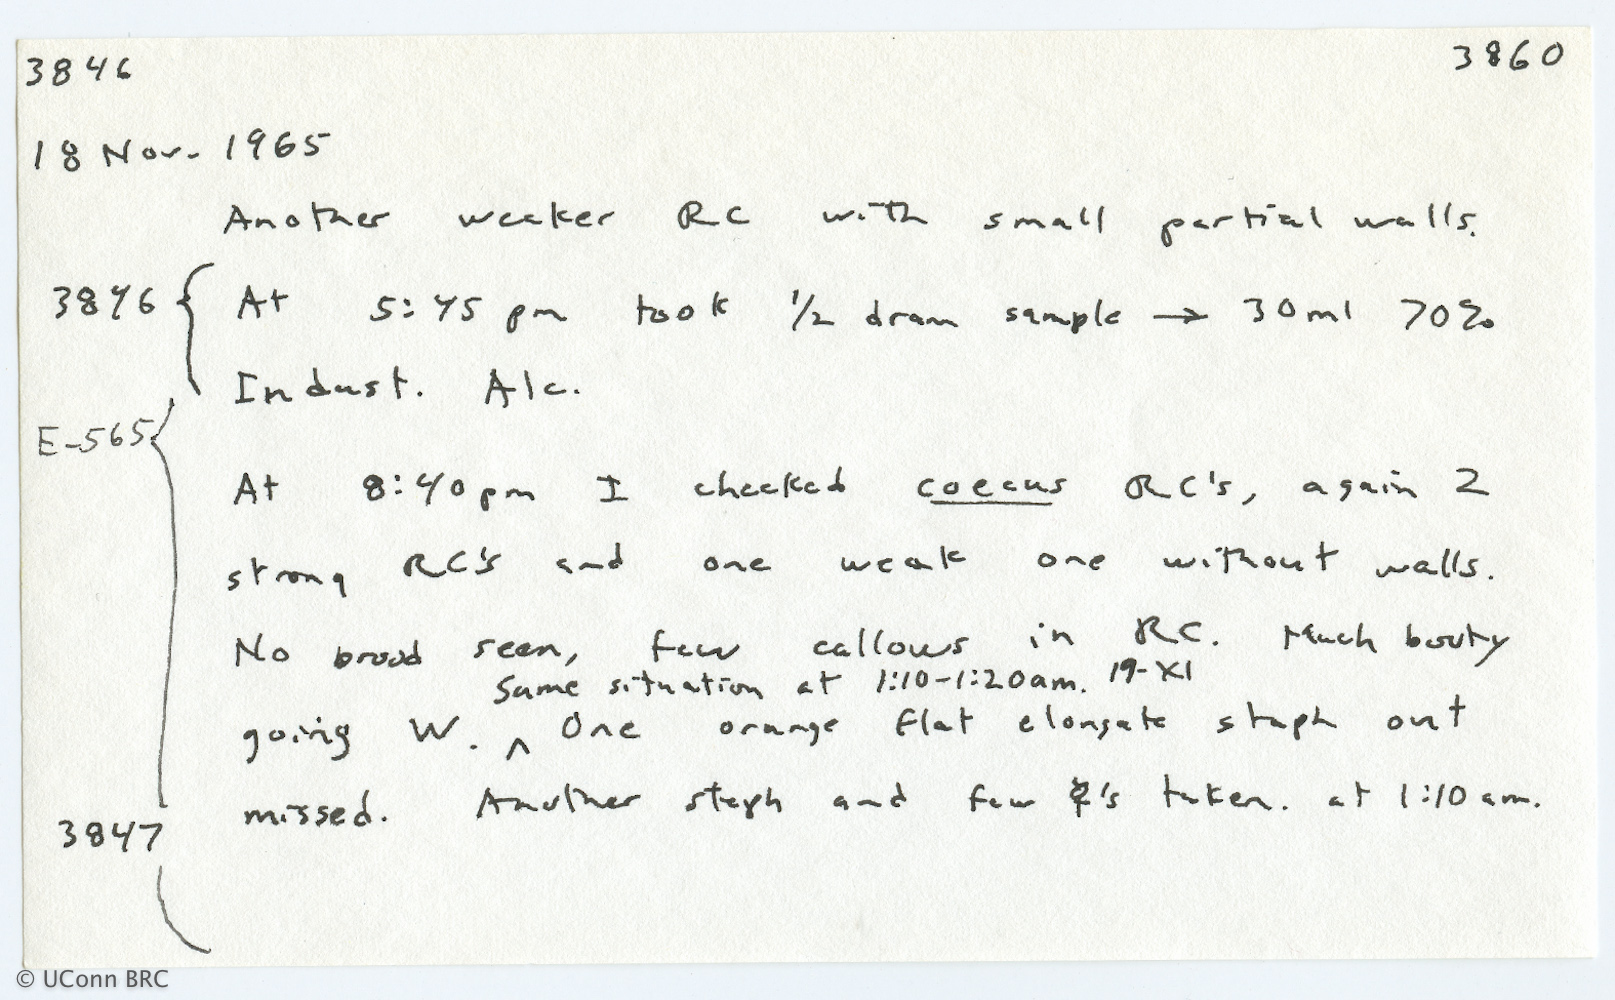 3846 3860
18 Nov. 1965
Another weaker RC with small partial walls.
3846 { At 5:45 pm took 1/2 dram sample → 30ml 70%
Indust. Alc.
E-565
At 8:40pm I checked coecus RC's, again 2
strong RC's and one weak one without walls.
No brood seen, few callows in RC. Much booty
Same situation at 1:10-1:20am. 19-XI
going W. ^ One orange flat elongate staph out
missed. Another staph and few ☿'s taken. at 1:10 am.
3847
© UConn BRC